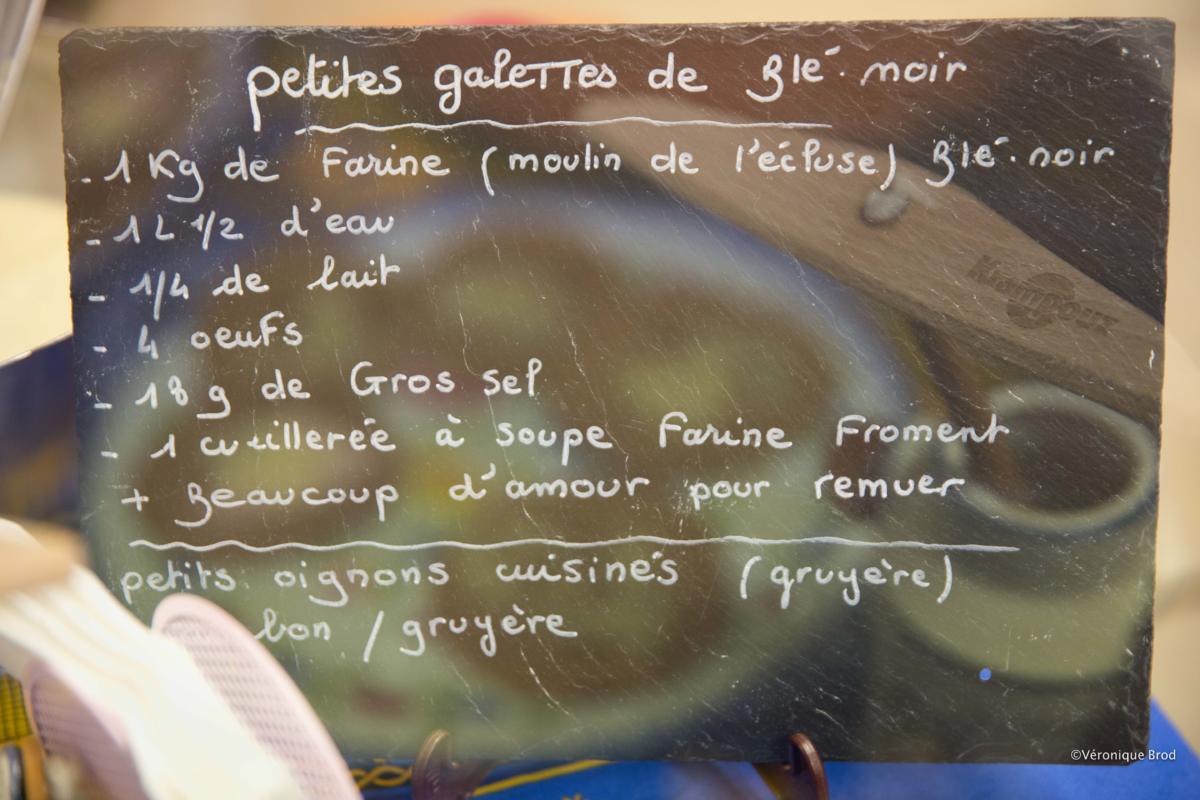 petites galettes de Blé noir
- 1 Kg de Farine (moulin de l'écluse) Blé noir
- 1L 1/2 d'eau
- 1/4 de lait
- 4 oeufs
- 18 g de Gros sel
- 1 cuillerée à soupe Farine Froment
+ Beaucoup d'amour pour remuer
petits oignons cuisinés (gruyère)
bon / gruyère
Krampouz
©Véronique Brod